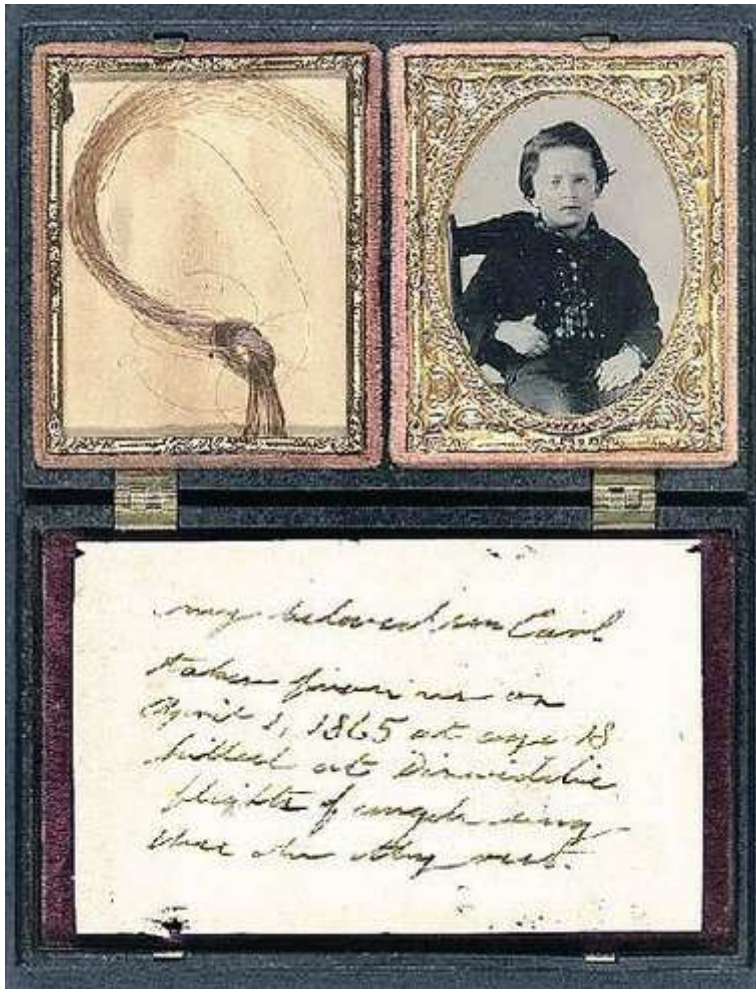 my beloved son Carl
taken from us on
April 1, 1865 at age 18
killed at Dinwiddie
flights of angels sing
thee to thy rest.